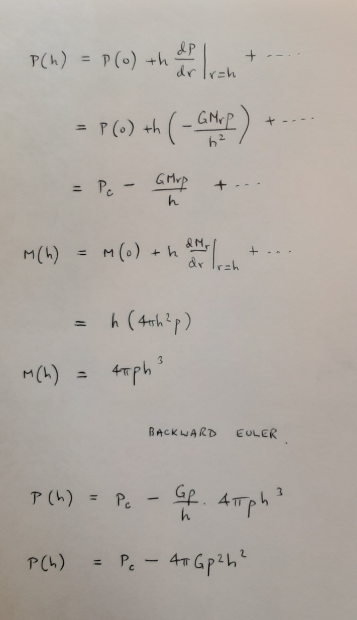 P(h) = P(0) + h dP/dr |r=h + ----
= P(0) + h ( - GMrρ / h² ) + ----
= Pc - GMrρ / h + ---
M(h) = M(0) + h dMr/dr |r=h + ---
= h (4πh²ρ)
M(h) = 4πρh³
BACKWARD EULER.
P(h) = Pc - Gρ/h . 4πρh³
P(h) = Pc - 4πGρ²h²